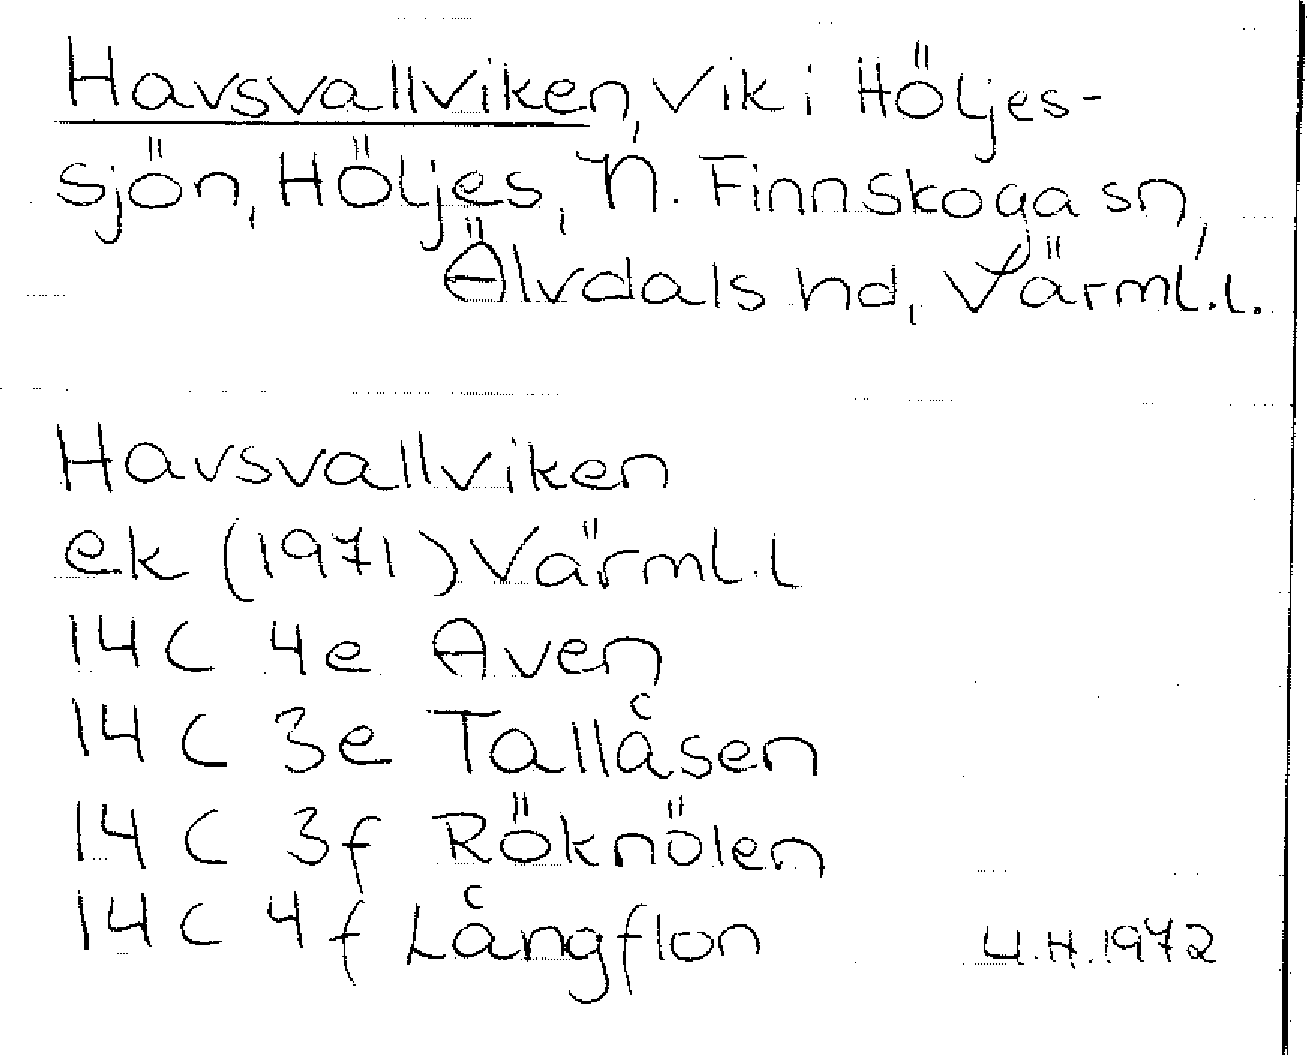 Havsvallviken, vik i Höljes-
sjön, Höljes, N. Finnskoga sn,
Älvdals hd, Värml.l.
Havsvallviken
ek (1971) Värml.l
14C 4e Aven
14C 3e Tallåsen
14C 3f Röknölen
14C 4f Långflon
U.H.1972